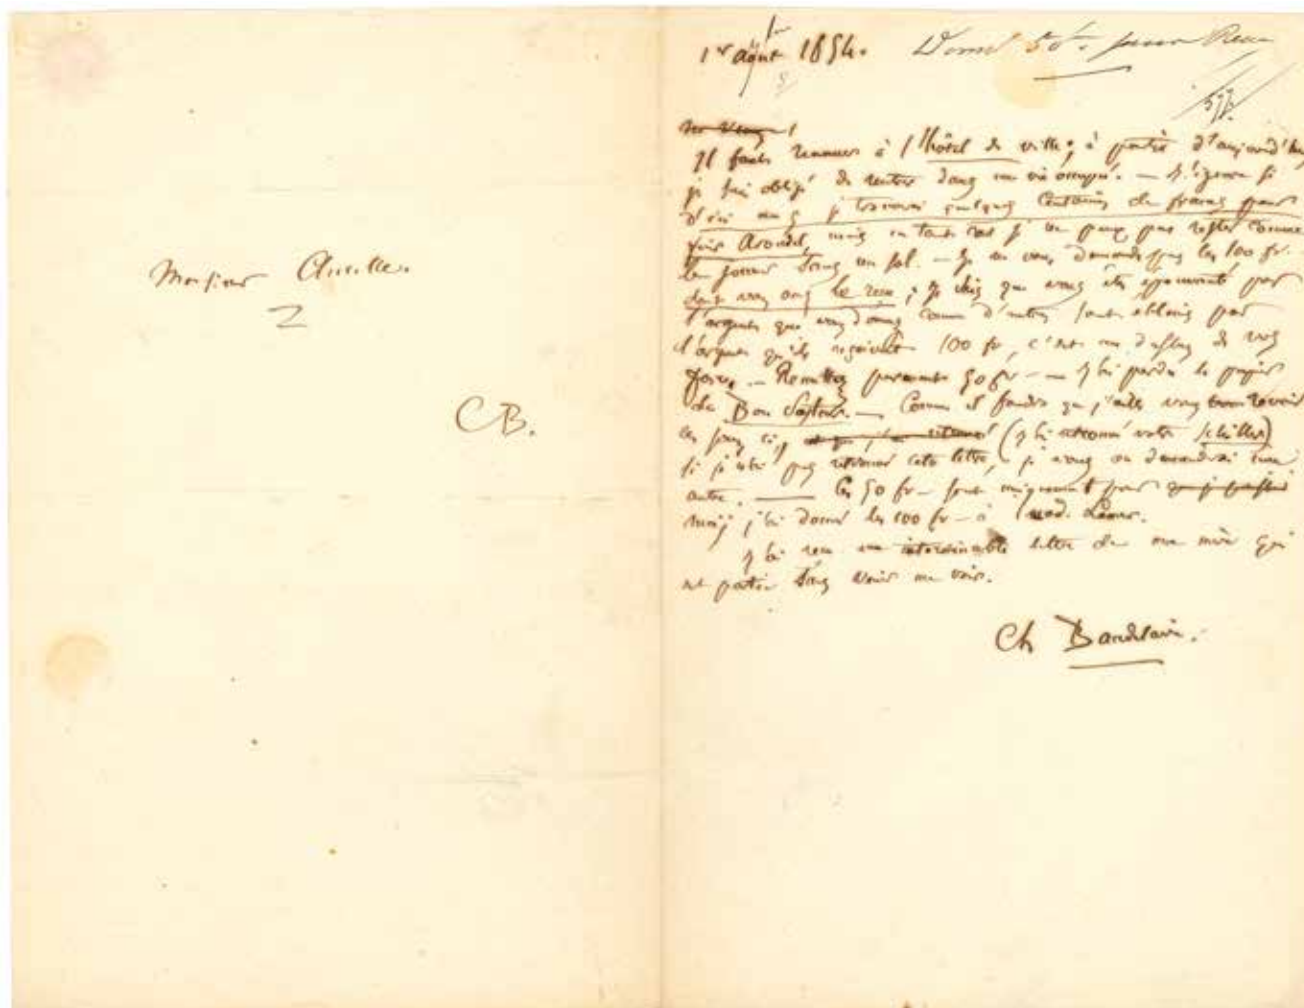 Monsieur Ancelle.
CB.
1er août 1854. Donné 50 f. sans Reçu
577
Il faut renoncer à l'hôtel de ville; à partir d'aujourd'hui
je suis obligé de rentrer dans ma vie occupée. — J'ignore si
d'ici au 5 je trouverai quelques centaines de francs pour
Arondel, mais en tout cas je ne peux pas rester comme
sans un sol. — Je ne vous demande pas les 100 fr.
dont vous avez le reçu; je sais que vous êtes épouvanté par
l'argent que vous donnez comme d'autres sont éblouis par
l'argent qu'ils reçoivent. 100 fr, c'est au dessus de vos
forces. — Remettez 50 fr — J'ai perdu le papier
du Bon Pasteur. — Comme il faudra que j'aille vous revoir
ces jours ci, (j'ai retrouvé votre Schiller)
si je n'ai pas retrouvé cette lettre, je vous en demanderai une
autre. — Ces 50 fr — sont uniquement pour
moi; j'ai donné les 100 fr — à Mad. Lemer.
J'ai reçu une interminable lettre de ma mère qui
est partie sans venir me voir.
Ch Baudelaire.